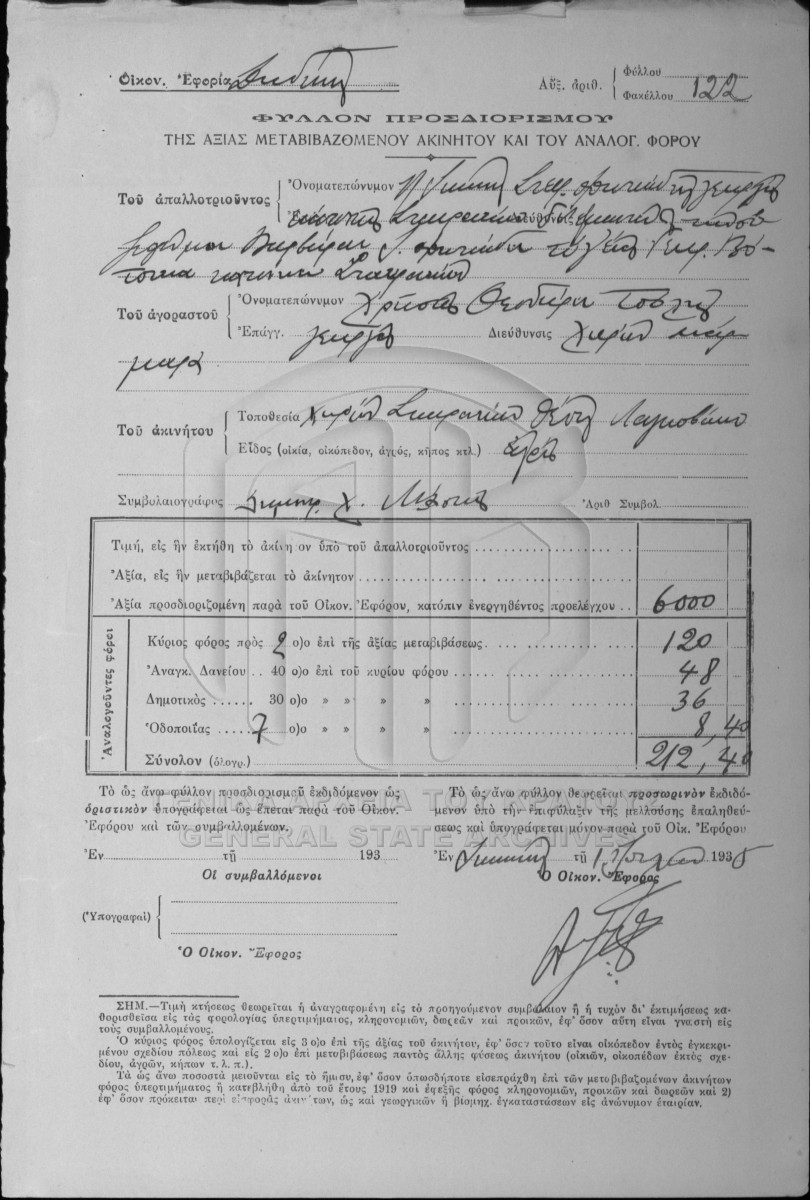 Οἰκον. Ἐφορία
Αὔξ. ἀριθ. Φύλλου
Φακέλλου 122
ΦΥΛΛΟΝ ΠΡΟΣΔΙΟΡΙΣΜΟΥ
ΤΗΣ ΑΞΙΑΣ ΜΕΤΑΒΙΒΑΖΟΜΕΝΟΥ ΑΚΙΝΗΤΟΥ ΚΑΙ ΤΟΥ ΑΝΑΛΟΓ. ΦΟΡΟΥ
Τοῦ ἀπαλλοτριοῦντος Ὀνοματεπώνυμον
Τοῦ ἀγοραστοῦ Ὀνοματεπώνυμον Χρῆστος Θεοδώρου
Ἐπάγγ. γεωργὸς Διεύθυνσις Χωρίον Μάρ
μαρα
Τοῦ ἀκινήτου Τοποθεσία Χωρίον θέσις
Εἶδος (οἰκία, οἰκόπεδον, ἀγρός, κῆπος κτλ.) ἀγρὸς
Συμβολαιογράφος Δημητρ. Χ. Ἀριθ Συμβολ.
Τιμή, εἰς ἣν ἐκτήθη τὸ ἀκίνη ον ὑπὸ τοῦ ἀπαλλοτριοῦντος
Ἀξία, εἰς ἣν μεταβιβάζεται τὸ ἀκίνητον
Ἀξία προσδιοριζομένη παρὰ τοῦ Οἰκον. Ἐφόρου, κατόπιν ἐνεργηθέντος προελέγχου . . 6000
Ἀναλογοῦντες φόροι
Κύριος φόρος πρὸς 2 ο)ο ἐπὶ τῆς ἀξίας μεταβιβάσεως 120
Ἀναγκ. Δανείου . . 40 ο)ο ἐπὶ τοῦ κυρίου φόρου 48
Δημοτικὸς 30 ο)ο » » » » 36
Ὁδοποιΐας 7 ο)ο » » » » 8,40
Σύνολον (ὁλογρ.) 212,40
Τὸ ὡς ἄνω φύλλον προσδιορισμοῦ ἐκδιδόμενον ὡς
ὁριστικὸν ὑπογράφεται ὡς ἕπεται παρὰ τοῦ Οἰκον.
Ἐφόρου καὶ τῶν συμβαλλομένων.
Ἐν τῇ 193
Οἱ συμβαλλόμενοι
(Ὑπογραφαὶ)
Ὁ Οἰκον. Ἔφορος
Τὸ ὡς ἄνω φύλλον θεωρεῖται προσωρινὸν ἐκδιδό-
μενον ὑπὸ τὴν ἐπιφύλαξιν τῆς μελλούσης ἐπαληθεύ-
σεως καὶ ὑπογράφεται μόνον παρὰ τοῦ Οἰκ. Ἐφόρου
Ἐν τῇ 1935
Ὁ Οἰκον. Ἔφορος
ΓΕΝΙΚΑ ΑΡΧΕΙΑ ΤΟΥ ΚΡΑΤΟΥΣ
GENERAL STATE ARCHIVES
ΣΗΜ.—Τιμὴ κτήσεως θεωρεῖται ἡ ἀναγραφομένη εἰς τὸ προηγούμενον συμβόλαιον ἢ ἡ τυχὸν δι' ἐκτιμήσεως κα-
θορισθεῖσα εἰς τὰς φορολογίας ὑπερτιμήματος, κληρονομιῶν, δωρεῶν καὶ προικῶν, ἐφ' ὅσον αὕτη εἶναι γνωστὴ εἰς
τοὺς συμβαλλομένους.
Ὁ κύριος φόρος ὑπολογίζεται εἰς 3 ο)ο ἐπὶ τῆς ἀξίας τοῦ ἀκινήτου, ἐφ' ὅσον τοῦτο εἶναι οἰκόπεδον ἐντὸς ἐγκεκρι-
μένου σχεδίου πόλεως καὶ εἰς 2 ο)ο ἐπὶ μεταβιβάσεως παντὸς ἄλλης φύσεως ἀκινήτου (οἰκιῶν, οἰκοπέδων ἐκτὸς σχε-
δίου, ἀγρῶν, κήπων τ. λ. π.).
Τὰ ὡς ἄνω ποσοστὰ μειοῦνται εἰς τὸ ἥμισυ, ἐφ' ὅσον ὁπωσδήποτε εἰσεπράχθη ἐπὶ τῶν μεταβιβαζομένων ἀκινήτων
φόρος ὑπερτιμήματος ἢ κατεβλήθη ἀπὸ τοῦ ἔτους 1919 καὶ ἐφεξῆς φόρος κληρονομιῶν, προικῶν καὶ δωρεῶν καὶ 2)
ἐφ' ὅσον πρόκειται περὶ εἰσφορᾶς ἀκινήτων, ὡς καὶ γεωργικῶν ἢ βιομηχ. ἐγκαταστάσεων εἰς ἀνώνυμον ἑταιρίαν.